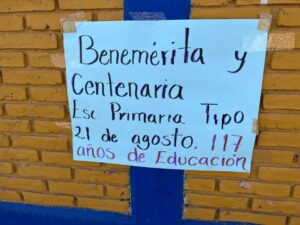 Benemérita y
Centenaria
Esc. Primaria Tipo
21 de agosto, 117
años de Educación